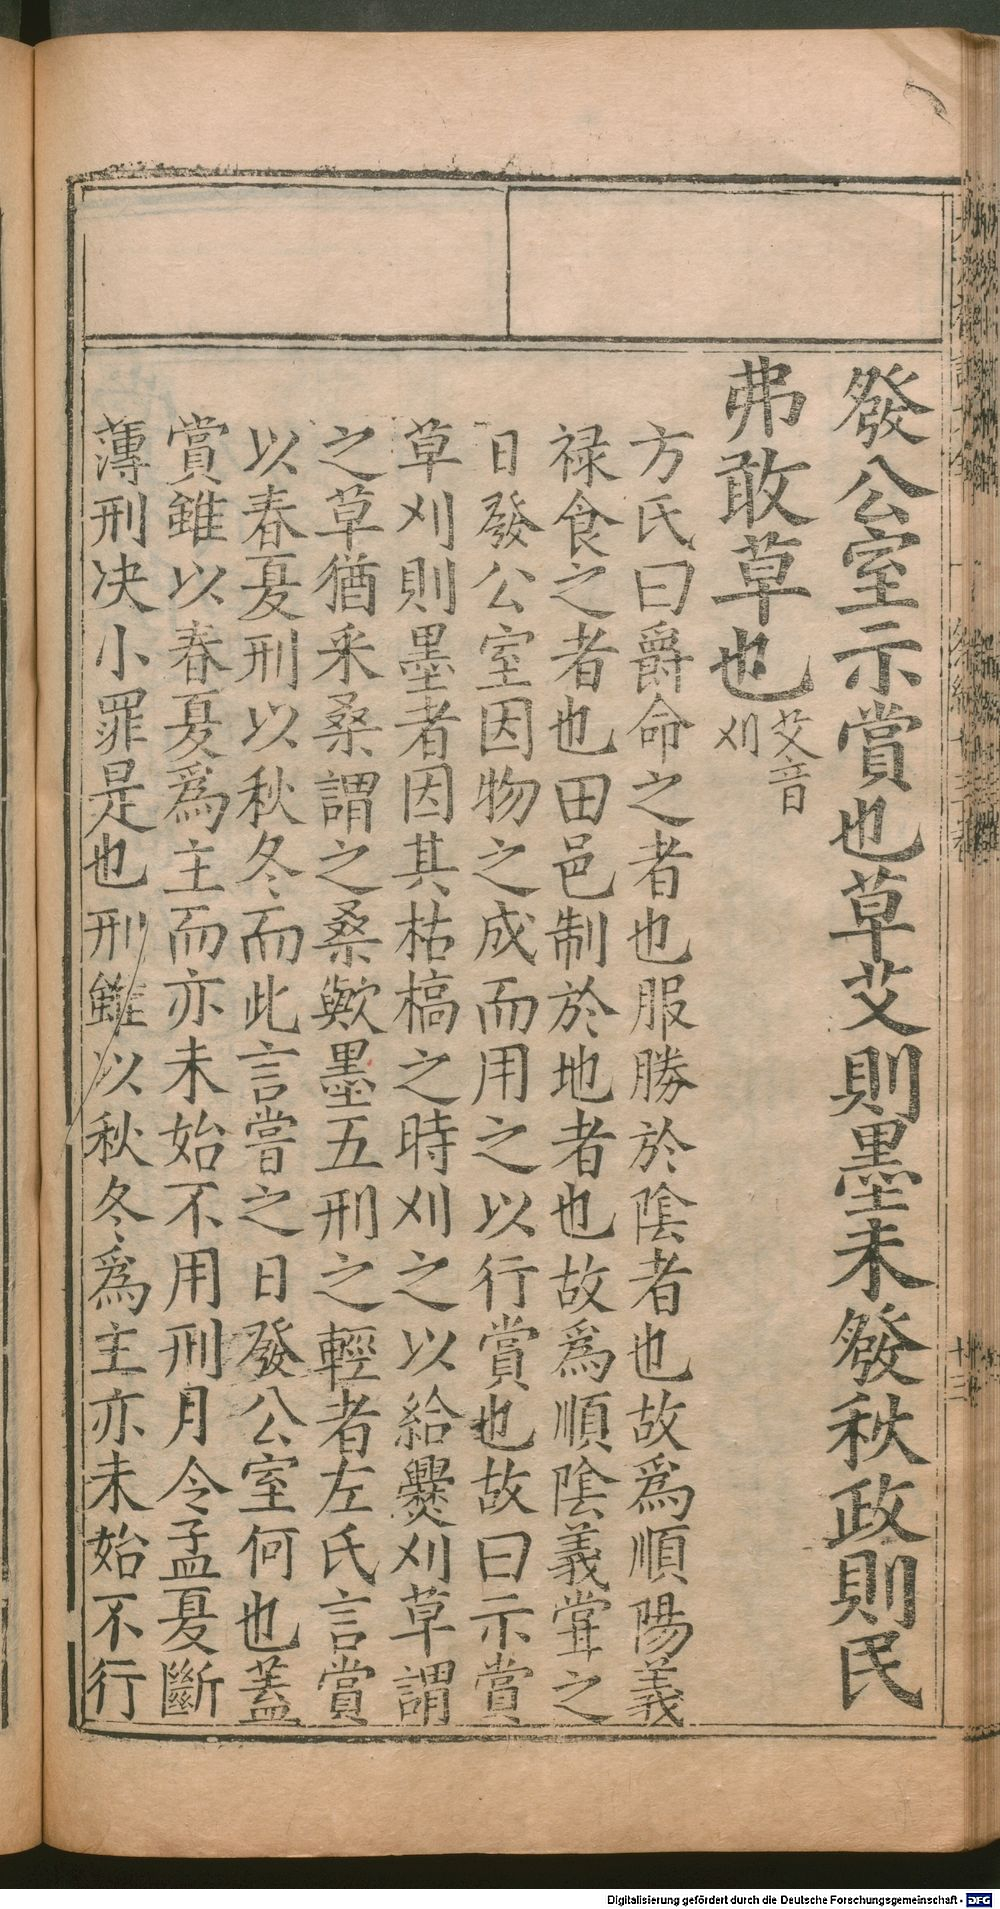 發公室示賞也草艾則墨未發秋政則民
弗敢草也艾音刈
方氏曰爵命之者也服勝於陰者也故爲順陽義
禄食之者也田邑制於地者也故爲順陰義甞之
日發公室因物之成而用之以行賞也故曰示賞
草刈則墨者因其枯槁之時刈之以給爨刈草謂
之草猶采桑謂之桑歟墨五刑之輕者左氏言賞
以春夏刑以秋冬而此言嘗之日發公室何也蓋
賞雖以春夏爲主而亦未始不用刑月令孟夏斷
薄刑决小罪是也刑雖以秋冬爲主亦未始不行
十三
Digitalisierung gefördert durch die Deutsche Forschungsgemeinschaft - DFG